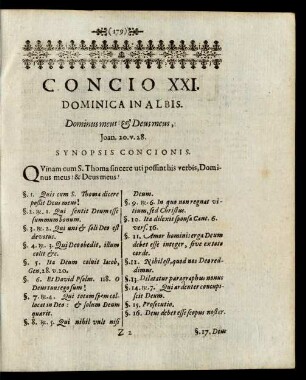 (179)
CONCIO XXI.
DOMINICA IN ALBIS.
Dominus meus & Deus meus,
Joan. 20. v. 28.
SYNOPSIS CONCIONIS.
QVinam cum S. Thoma sincere uti possint his verbis, Domi-
nus meus: & Deus meus?
§. 1. Quis cum S. Thoma dicere
possit Deus meus?
§. 2. 2. Qui sentit Deum esse
summum bonum.
§. 3. 2. Qui uni & soli Deo est
devotus.
§. 4. Qui Deo obedit, illum
colit &c.
§. 5. Ita Deum coluit Jacob,
Gen. 28. v. 20.
§. 6. Et David Psalm. 118. O
Deus tuus ego sum!
§. 7. 4. Qui totam spem col-
locat in Deo: & solum Deum
quærit.
§. 8. 5. Qui nihil vult nisi
Deum.
§. 9. 6. In quo non regnat vi-
tium, sed Christus.
§. 10. Ita dilecta sponsa Cant. 6.
vers. 16.
§. 11. Amor hominis erga Deum
debet esse integer, sive ex toto
corde.
§. 12. Nihil est, quod nos Deo red-
dimus.
§. 13. Dilatatur paragraphus nonus
§. 14. 7. Qui ardenter concu-
piscit Deum.
§. 15. Prosecutio.
§. 16. Deus debet esse scopus noster.
Z 2
§. 17. Deus